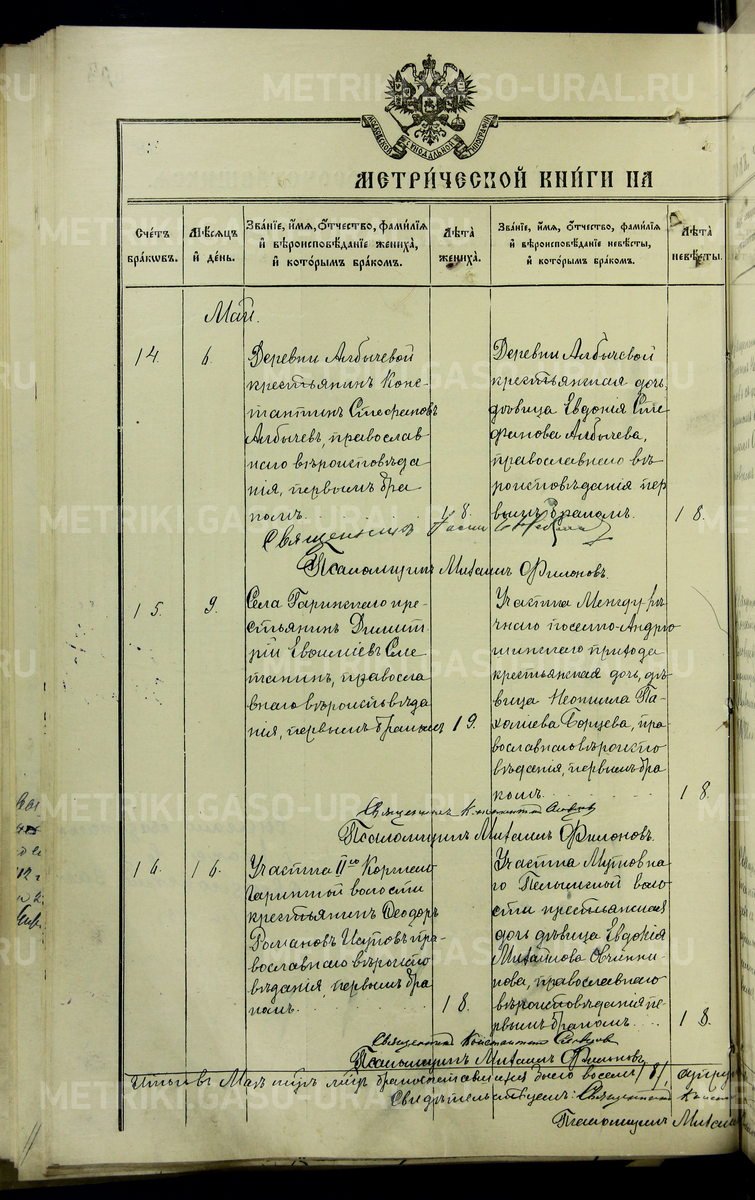 МЕТРИ́ЧЕСКОЙ КНИ́ГИ НА
Сче́тъ бра́ковъ.
Мѣ́сяцъ и де́нь.
Зва́нїе, и́мя, о́тчество, фами́лїя и вѣроисповѣ́данїе жениха́, и кото́рымъ бра́комъ.
Лѣта̀ жениха̀.
Зва́нїе, и́мя, о́тчество, фами́лїя и вѣроисповѣ́данїе невѣ́сты, и кото́рымъ бра́комъ.
Лѣта̀ невѣ́сты.
Май.
14.
6.
Деревни Албычевой
крестьянинъ Конс-
тантинъ Стефановъ
Албычевъ, православ
наго вѣроисповѣда
нія, первымъ бра
комъ.
18.
Деревни Албычевой
крестьянская дочь,
дѣвица Евдокія Сте
фанова Албычева,
православнаго вѣ
роисповѣданія пер
вымъ бракомъ.
18.
Священникъ
Псаломщикъ Михаилъ Филоновъ.
15.
9.
Села Гаринскаго кре-
стьянинъ Димит
рій Евѳиміевъ Сме
танинъ, правосла
внаго вѣроисповѣда
нія, первымъ бракомъ
19.
Участка Междурѣ
чнаго
прихода
крестьянская дочь, дѣ
вица Неонила Па-
Борцева, пра
вославнаго вѣроиспо
вѣданія, первымъ бра
комъ.
18.
Священникъ Константинъ
Псаломщикъ Михаилъ Филоновъ.
16.
16.
Участка
Гаринской волости
крестьянинъ Ѳеодоръ
Романовъ пра
вославнаго вѣроиспо
вѣданія, первымъ бра
комъ.
18.
Участка
го Пелымской воло
сти крестьянская
дочь дѣвица Евдокія
Михайлова Овчинни
кова, православнаго
вѣроисповѣданія пе
рвымъ бракомъ.
18.
Священникъ Константинъ
Псаломщикъ Михаилъ Филоновъ
Итого въ Маѣ мѣс. лицъ
Свидѣтельствуемъ: Священникъ
Псаломщикъ
METRIKI.GASO-URAL.RU